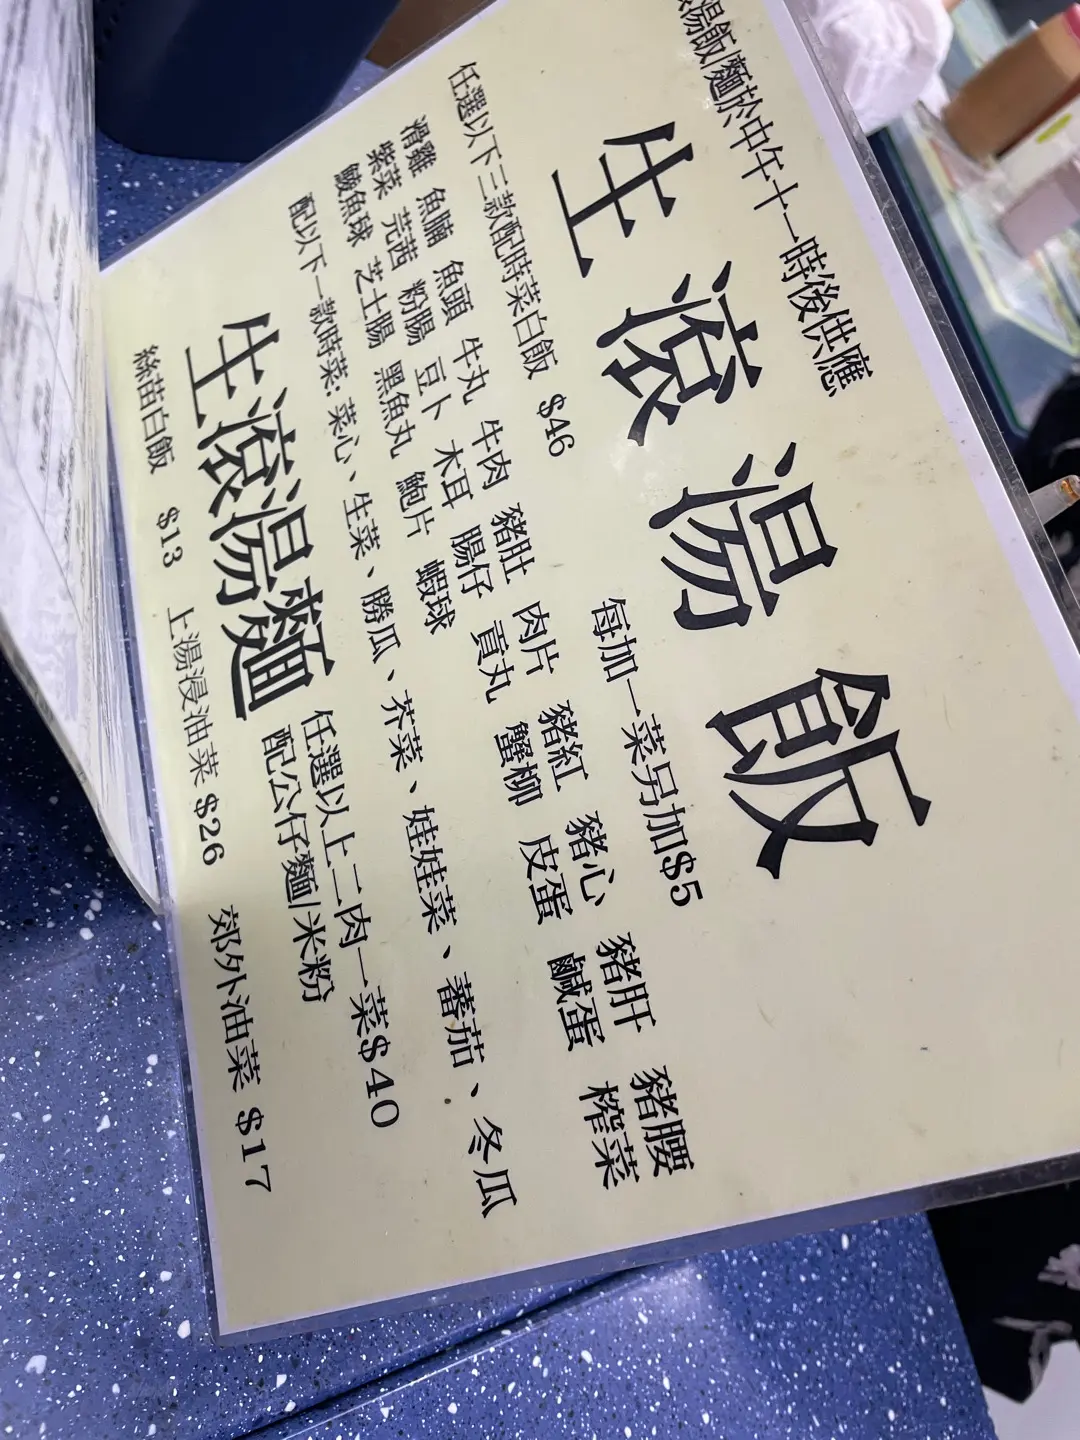 湯飯/麵於中午十一時後供應
生滾湯飯
每加一菜另加$5
任選以下三款配時菜白飯 $46
滑雞 魚腩 魚頭 牛丸 牛肉 豬肚 肉片 豬紅 豬心 豬肝 豬腰
紫菜 芫茜 粉腸 豆卜 木耳 腸仔 貢丸 蟹柳 皮蛋 鹹蛋 榨菜
鯪魚球 芝士腸 黑魚丸 鮑片 蝦球
配以下一款時菜: 菜心、生菜、勝瓜、芥菜、娃娃菜、蕃茄、冬瓜
生滾湯麵
任選以上二肉一菜$40
配公仔麵/米粉
絲苗白飯 $13 上湯浸油菜 $26 郊外油菜 $17